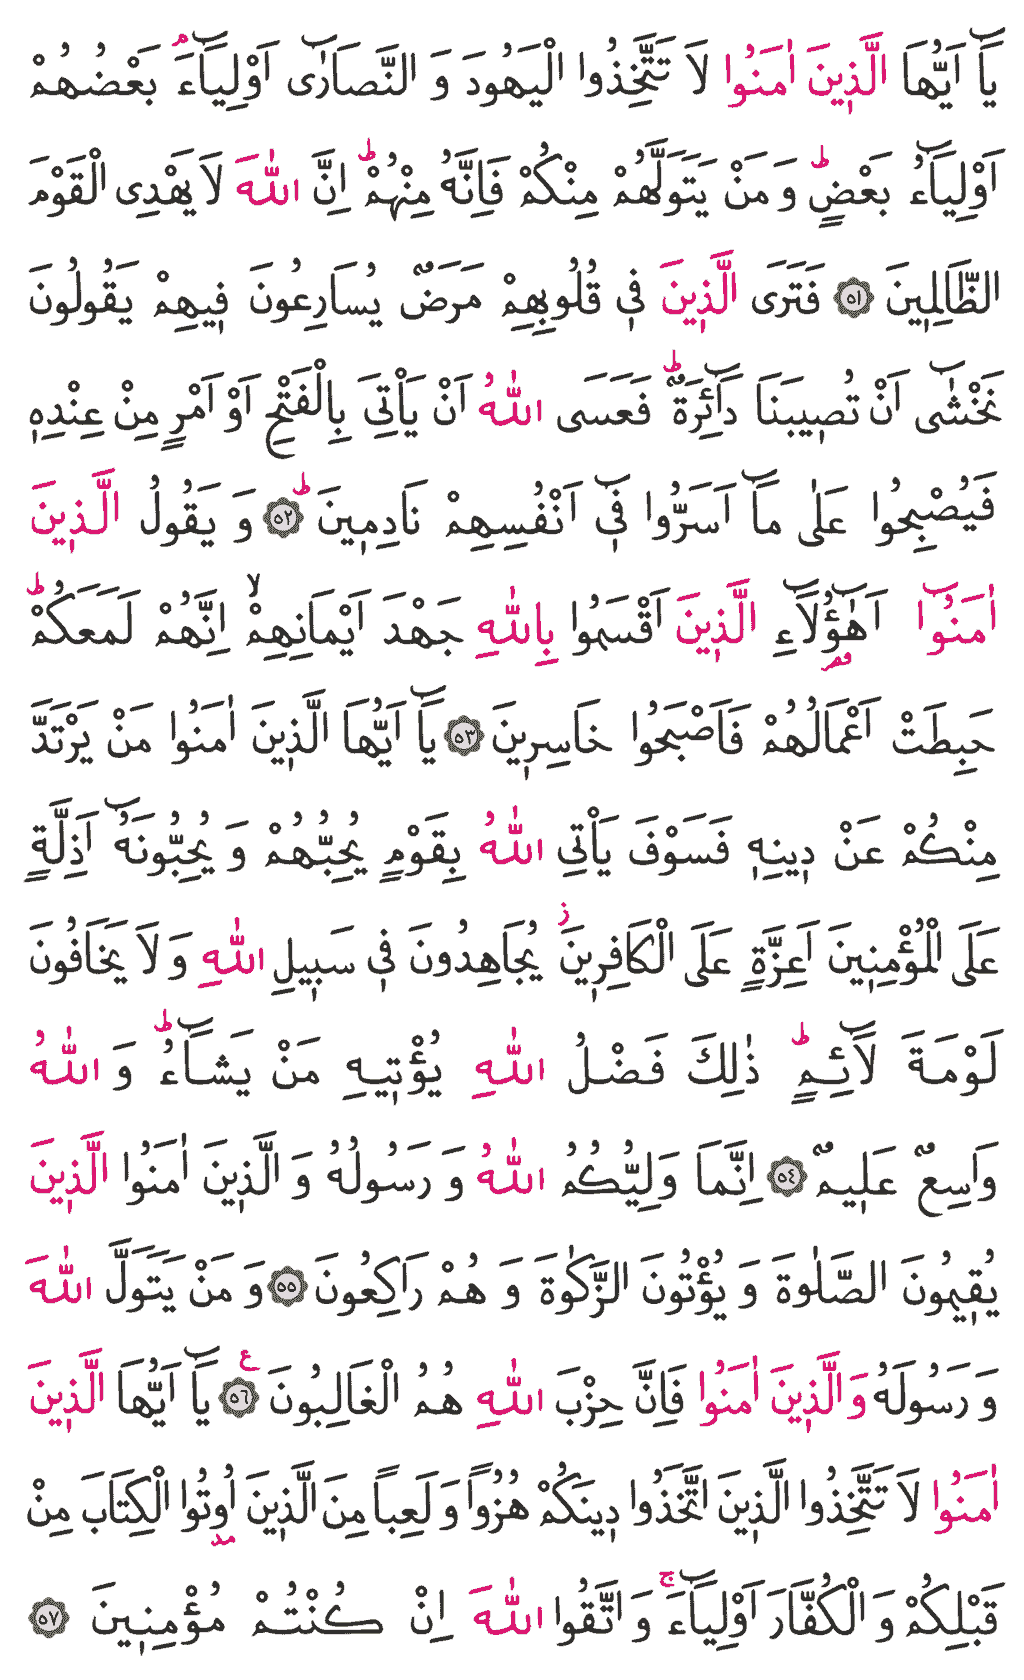 يَٓا اَيُّهَا الَّذ۪ينَ اٰمَنُوا لَا تَتَّخِذُوا الْيَهُودَ وَ النَّصَارٰٓى اَوْلِيَٓاءَۢ بَعْضُهُمْ
اَوْلِيَٓاءُ بَعْضٍۜ وَ مَنْ يَتَوَلَّهُمْ مِنْكُمْ فَاِنَّهُ مِنْهُمْۜ اِنَّ اللّٰهَ لَا يَهْدِى الْقَوْمَ
الظَّالِم۪ينَ ﴿٥١﴾ فَتَرَى الَّذ۪ينَ ف۪ى قُلُوبِهِمْ مَرَضٌ يُسَارِعُونَ ف۪يهِمْ يَقُولُونَ
نَخْشٰٓى اَنْ تُص۪يبَنَا دَٓائِرَةٌۜ فَعَسَى اللّٰهُ اَنْ يَأْتِىَ بِالْفَتْحِ اَوْ اَمْرٍ مِنْ عِنْدِه۪
فَيُصْبِحُوا عَلٰى مَٓا اَسَرُّوا ف۪ٓى اَنْفُسِهِمْ نَادِم۪ينَۜ ﴿٥٢﴾ وَ يَقُولُ الَّذ۪ينَ
اٰمَنُٓوا اَهٰٓؤُ۬لَٓاءِ الَّذ۪ينَ اَقْسَمُوا بِاللّٰهِ جَهْدَ اَيْمَانِهِمْۙ اِنَّهُمْ لَمَعَكُمْۜ
حَبِطَتْ اَعْمَالُهُمْ فَاَصْبَحُوا خَاسِر۪ينَ ﴿٥٣﴾ يَٓا اَيُّهَا الَّذ۪ينَ اٰمَنُوا مَنْ يَرْتَدَّ
مِنْكُمْ عَنْ د۪ينِه۪ فَسَوْفَ يَأْتِى اللّٰهُ بِقَوْمٍ يُحِبُّهُمْ وَ يُحِبُّونَهُٓ اَذِلَّةٍ
عَلَى الْمُؤْمِن۪ينَ اَعِزَّةٍ عَلَى الْكَافِر۪ينَۘ يُجَاهِدُونَ ف۪ى سَب۪يلِ اللّٰهِ وَ لَا يَخَافُونَ
لَوْمَةَ لَٓائِمٍۜ ذٰلِكَ فَضْلُ اللّٰهِ يُؤْت۪يهِ مَنْ يَشَٓاءُۜ وَ اللّٰهُ
وَاسِعٌ عَل۪يمٌ ﴿٥٤﴾ اِنَّمَا وَلِيُّكُمُ اللّٰهُ وَ رَسُولُهُ وَ الَّذ۪ينَ اٰمَنُوا الَّذ۪ينَ
يُق۪يمُونَ الصَّلٰوةَ وَ يُؤْتُونَ الزَّكٰوةَ وَ هُمْ رَاكِعُونَ ﴿٥٥﴾ وَ مَنْ يَتَوَلَّ اللّٰهَ
وَ رَسُولَهُ وَ الَّذ۪ينَ اٰمَنُوا فَاِنَّ حِزْبَ اللّٰهِ هُمُ الْغَالِبُونَ ﴿٥٦﴾ ع يَٓا اَيُّهَا الَّذ۪ينَ
اٰمَنُوا لَا تَتَّخِذُوا الَّذ۪ينَ اتَّخَذُوا د۪ينَكُمْ هُزُوًا وَ لَعِبًا مِنَ الَّذ۪ينَ اُو۫تُوا الْكِتَابَ مِنْ
قَبْلِكُمْ وَ الْكُفَّارَ اَوْلِيَٓاءَۚ وَ اتَّقُوا اللّٰهَ اِنْ كُنْتُمْ مُؤْمِن۪ينَ ﴿٥٧﴾